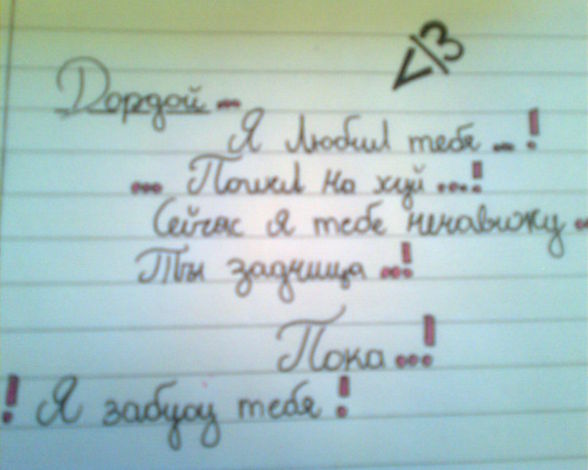 </3
Дордой...
Я Любил тебя ...!
... Пошел на хуй ...!
Сейчас я тебе ненавижу ..
Ты задница ...!
Пока ...!
! Я забуду тебя !